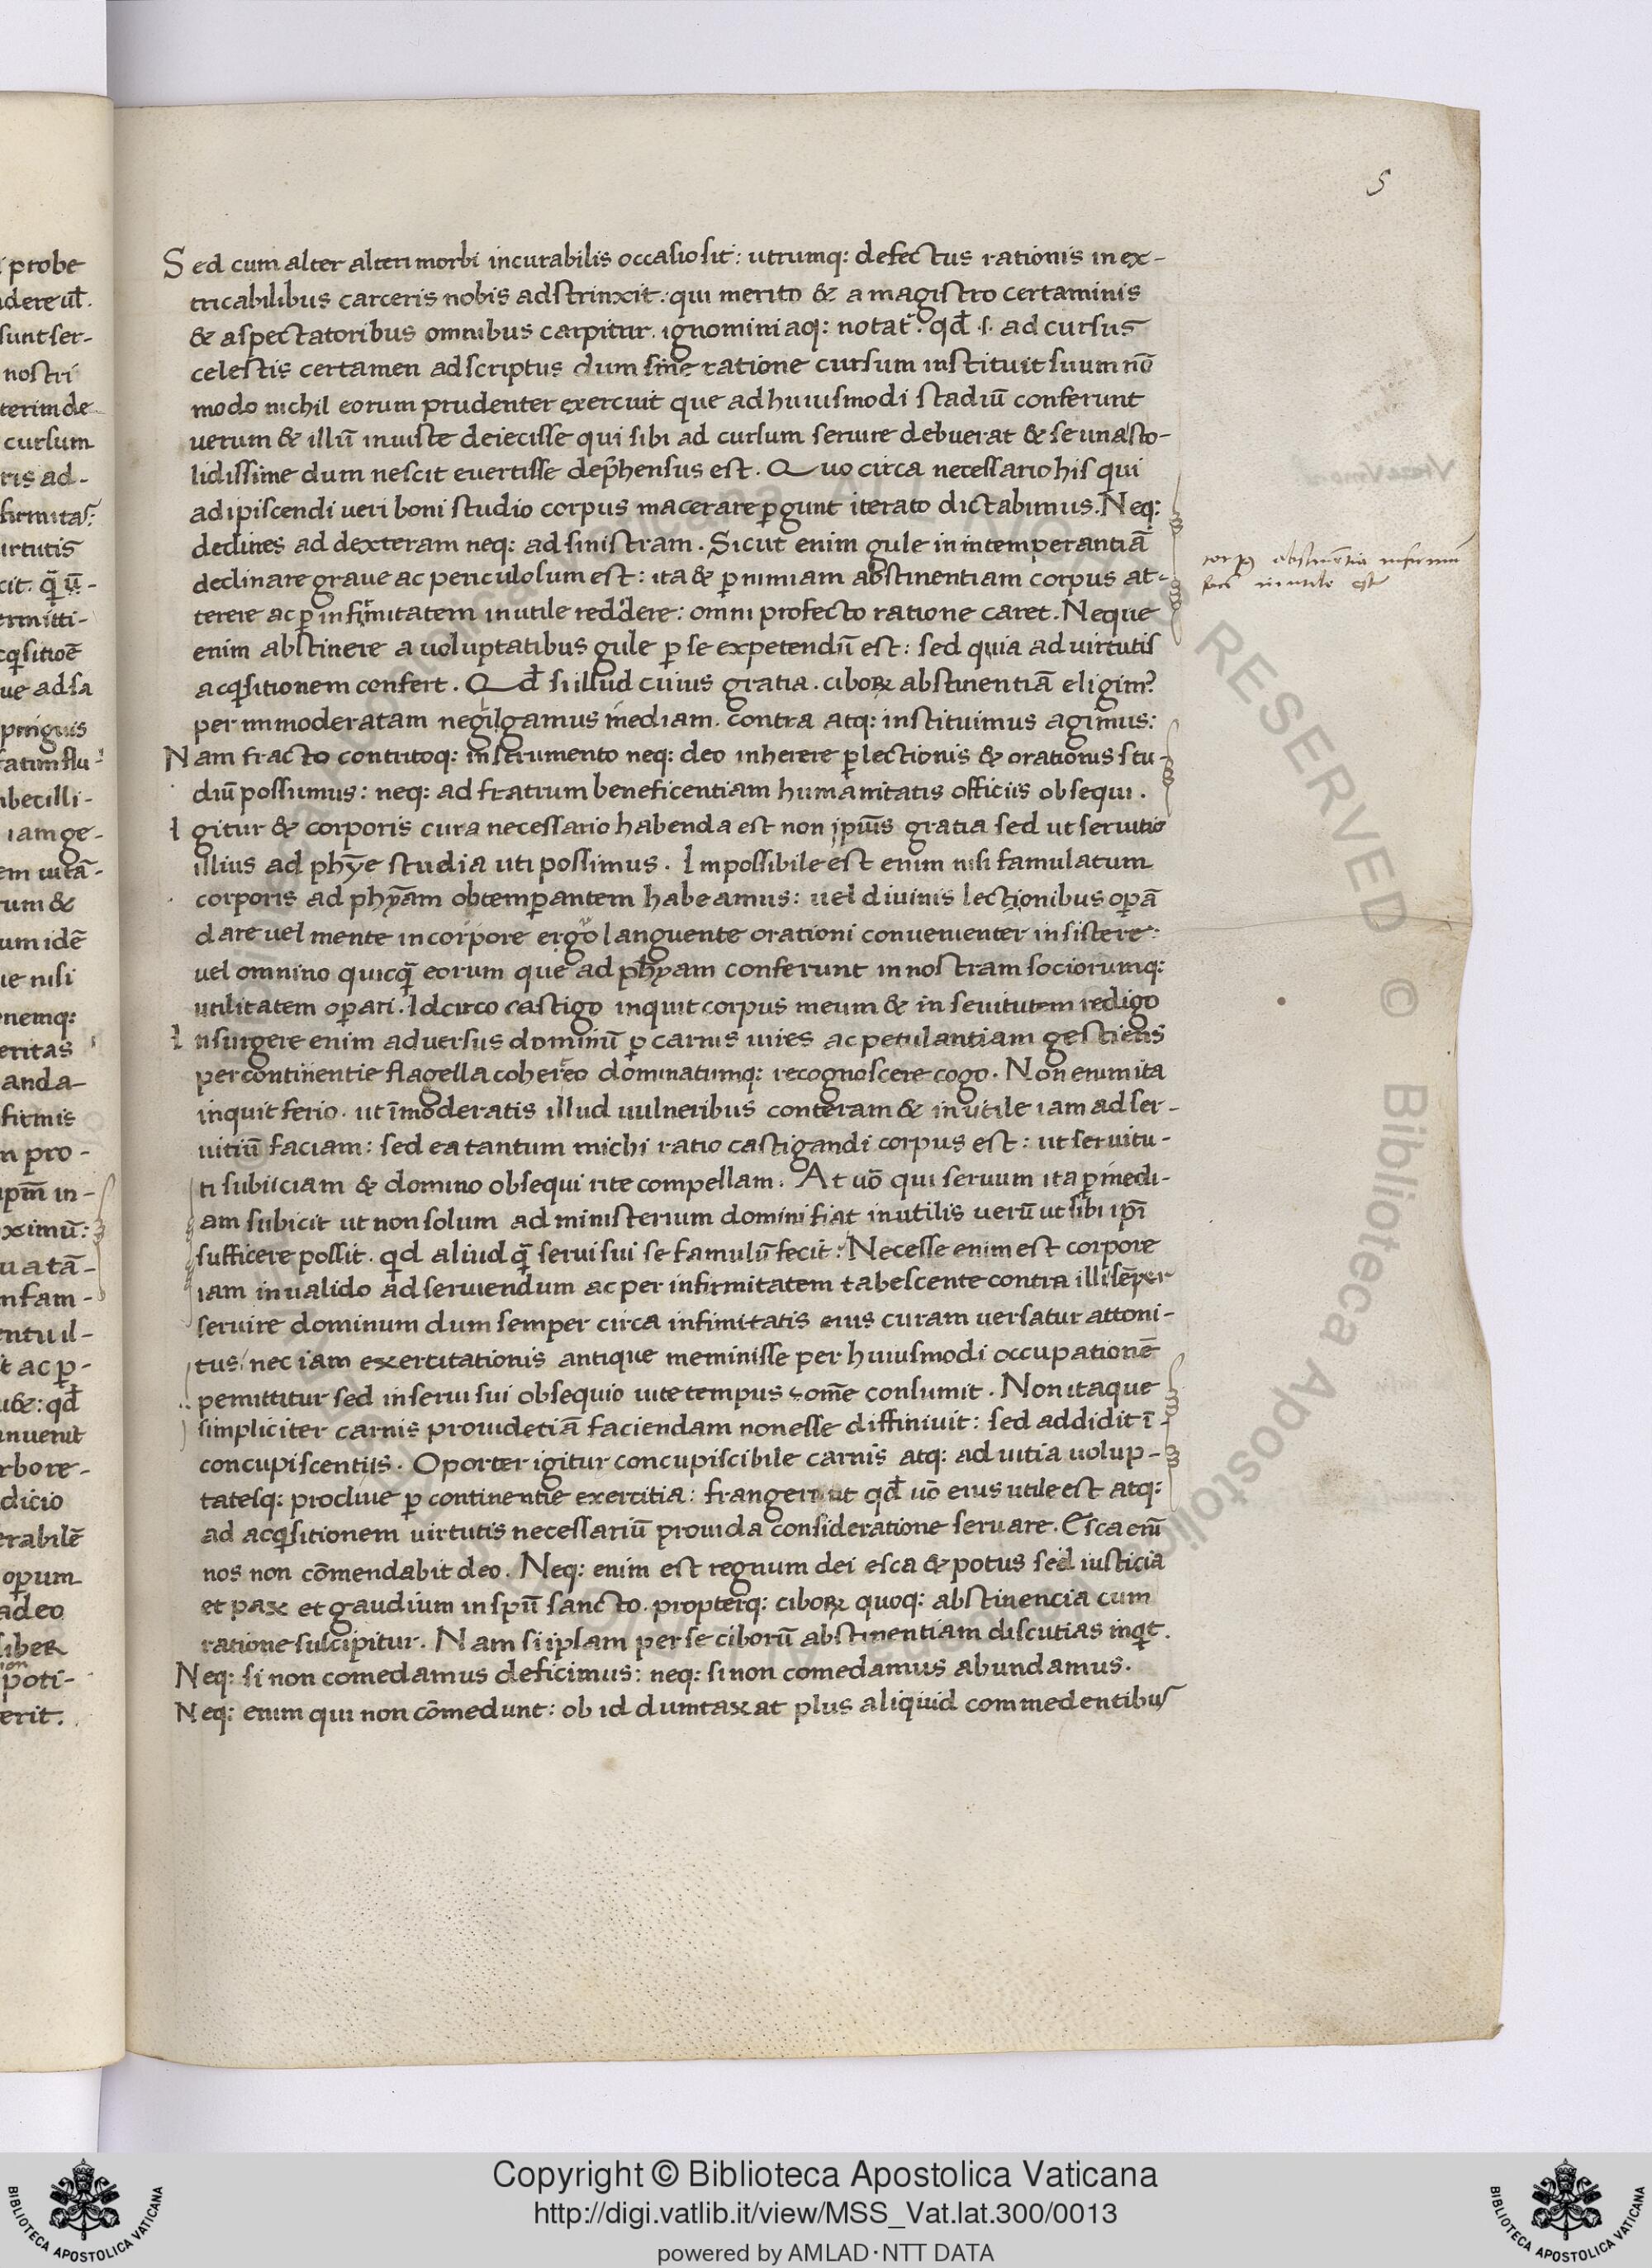 5
Sed cum alter alteri morbi incurabilis occasio sit: utrumq: defectus rationis in ex-
tricabilibus carceris nobis adstrinxit. qui merito & a magistro certaminis
& a spectatoribus omnibus carpitur. ignominiaq: notat᷑. qd̄ .s. ad cursus
celestis certamen adscriptus dum sine ratione cursum instituit suum nō
modo nichil eorum prudenter exercuit que ad huiusmodi stadiū conferunt
uerum & illū iniuste deiecisse qui sibi ad cursum seruire debuerat & se una sto-
lidissime dum nescit euertisse dep̄hensus est. Quo circa necessario his qui
adipiscendi ueri boni studio corpus macerare ꝑgunt iterato dictabimus. Neq:
declines ad dexteram neq: ad sinistram. Sicut enim gule in intemperantiā
declinare graue ac periculosum est: ita & ꝑ nimiam abstinentiam corpus at-
terere ac ꝑ infirmitatem inutile reddere: omni profecto ratione caret. Neque
enim abstinere a uoluptatibus gule ꝑ se expetendū est: sed quia ad uirtutis
acqͥsitionem confert. Qd̄ si illud cuius gratia. ciboꝝ abstinentiā eligimꝰ
per immoderatam negilgamus inediam. contra atq: instituimus agimus:
Nam fracto contritoq: instrumento neq: deo inherere ꝑ lectionis & orationis stu-
diū possumus: neq: ad fratrum beneficentiam humanitatis officiis obsequi.
Igitur & corporis cura necessario habenda est non ipiūs gratia sed ut seruitio
illius ad phȳe studia uti possimus. Impossibile est enim nisi famulatum
corporis ad phȳam obtemꝑantem habeamus: uel diuinis lectionibus oꝑā
dare uel mente in corpore ergo languente orationi conuenienter insistere:
uel omnino quicq̄ eorum que ad phȳam conferunt in nostram sociorumq:
utilitatem oꝑari. Idcirco castigo inquit corpus meum & in seuitutem redigo
Insurgere enim aduersus dominū ꝑ carnis uires ac petulantiam gestiens
per continentie flagella coherceo dominatumq: recognoscere cogo. Non enim ita
inquit ferio. ut īmoderatis illud uulneribus conteram & inutile iam ad ser-
uitiū faciam: sed ea tantum michi ratio castigandi corpus est: ut seruitu-
ti subiiciam & domino obsequi rite compellam. At uō qui seruum ita ꝑ inedi-
am subicit ut non solum ad ministerium domini fiat inutilis uerū ut sibi ipī
sufficere possit. qͥd aliud q̄ serui sui se famulū fecit: Necesse enim est corpore
iam inualido ad seruiendum ac per infirmitatem tabescente contra illi sēper
seruire dominum dum semper circa infimitatis eius curam uersatur attoni-
tus/ nec iam exercitationis antique meminisse per huiusmodi occupationē
pemittitur sed in serui sui obsequio uite tempus omē consumit. Non itaque
simpliciter carnis prouidetiā faciendam non esse diffiniuit: sed addidit ī
concupiscentiis. Oportet igitur concupiscibile carnis atq: ad uitia uolup-
tatesq: procliue ꝑ continentie exercitia: frangere ut qd̄ uō eius utile est atq:
ad acqͥsitionem uirtutis necessariū prouida consideratione seruare. Esca eīm
nos non cōmendabit deo. Neq: enim est regnum dei esca & potus sed iusticia
et pax et gaudium in spū sancto. propterq: ciboꝝ quoq: abstinencia cum
ratione suscipitur. Nam si ipsam per se ciborū abstinentiam discutias inqͥt.
Neq: si non comedamus deficimus: neq: si non comedamus abundamus.
Neq: enim qui non cōmedunt: ob id dumtaxat plus aliquid commedentibus
Copyright © Biblioteca Apostolica Vaticana
http://digi.vatlib.it/view/MSS_Vat.lat.300/0013
powered by AMLAD·NTT DATA
BIBLIOTECA APOSTOLICA VATICANA
BIBLIOTECA APOSTOLICA VATICANA